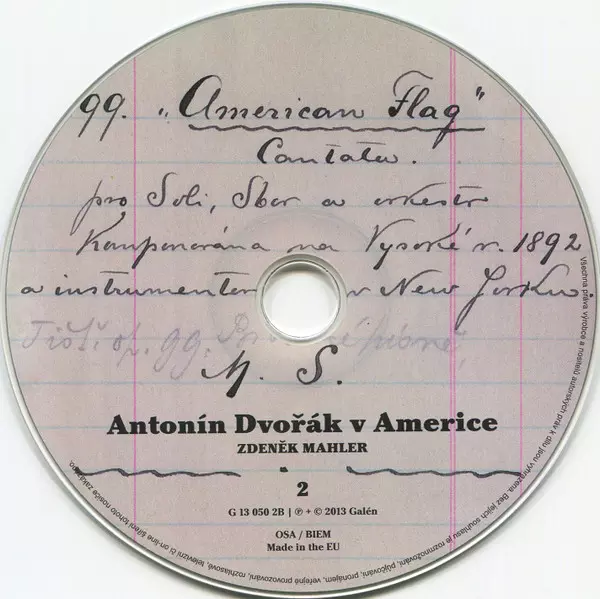 99. „American Flag"
Cantata.
pro Soli, Sbor a orkestr
Komponována na Vysoké r. 1892
a instrumento v New Yorku.
Tišt. op. 99. písně,
M. S.
Antonín Dvořák v Americe
ZDENĚK MAHLER
2
G 13 050 2B | ℗ + © 2013 Galén
OSA / BIEM
Made in the EU
Všechna práva výrobce a nositelů autorských práv k dílu jsou vyhrazena. Bez jejich souhlasu je rozmnožování, půjčování, pronájem, veřejné provozování, rozhlasové, televizní či on-line šíření tohoto nosiče zakázáno.